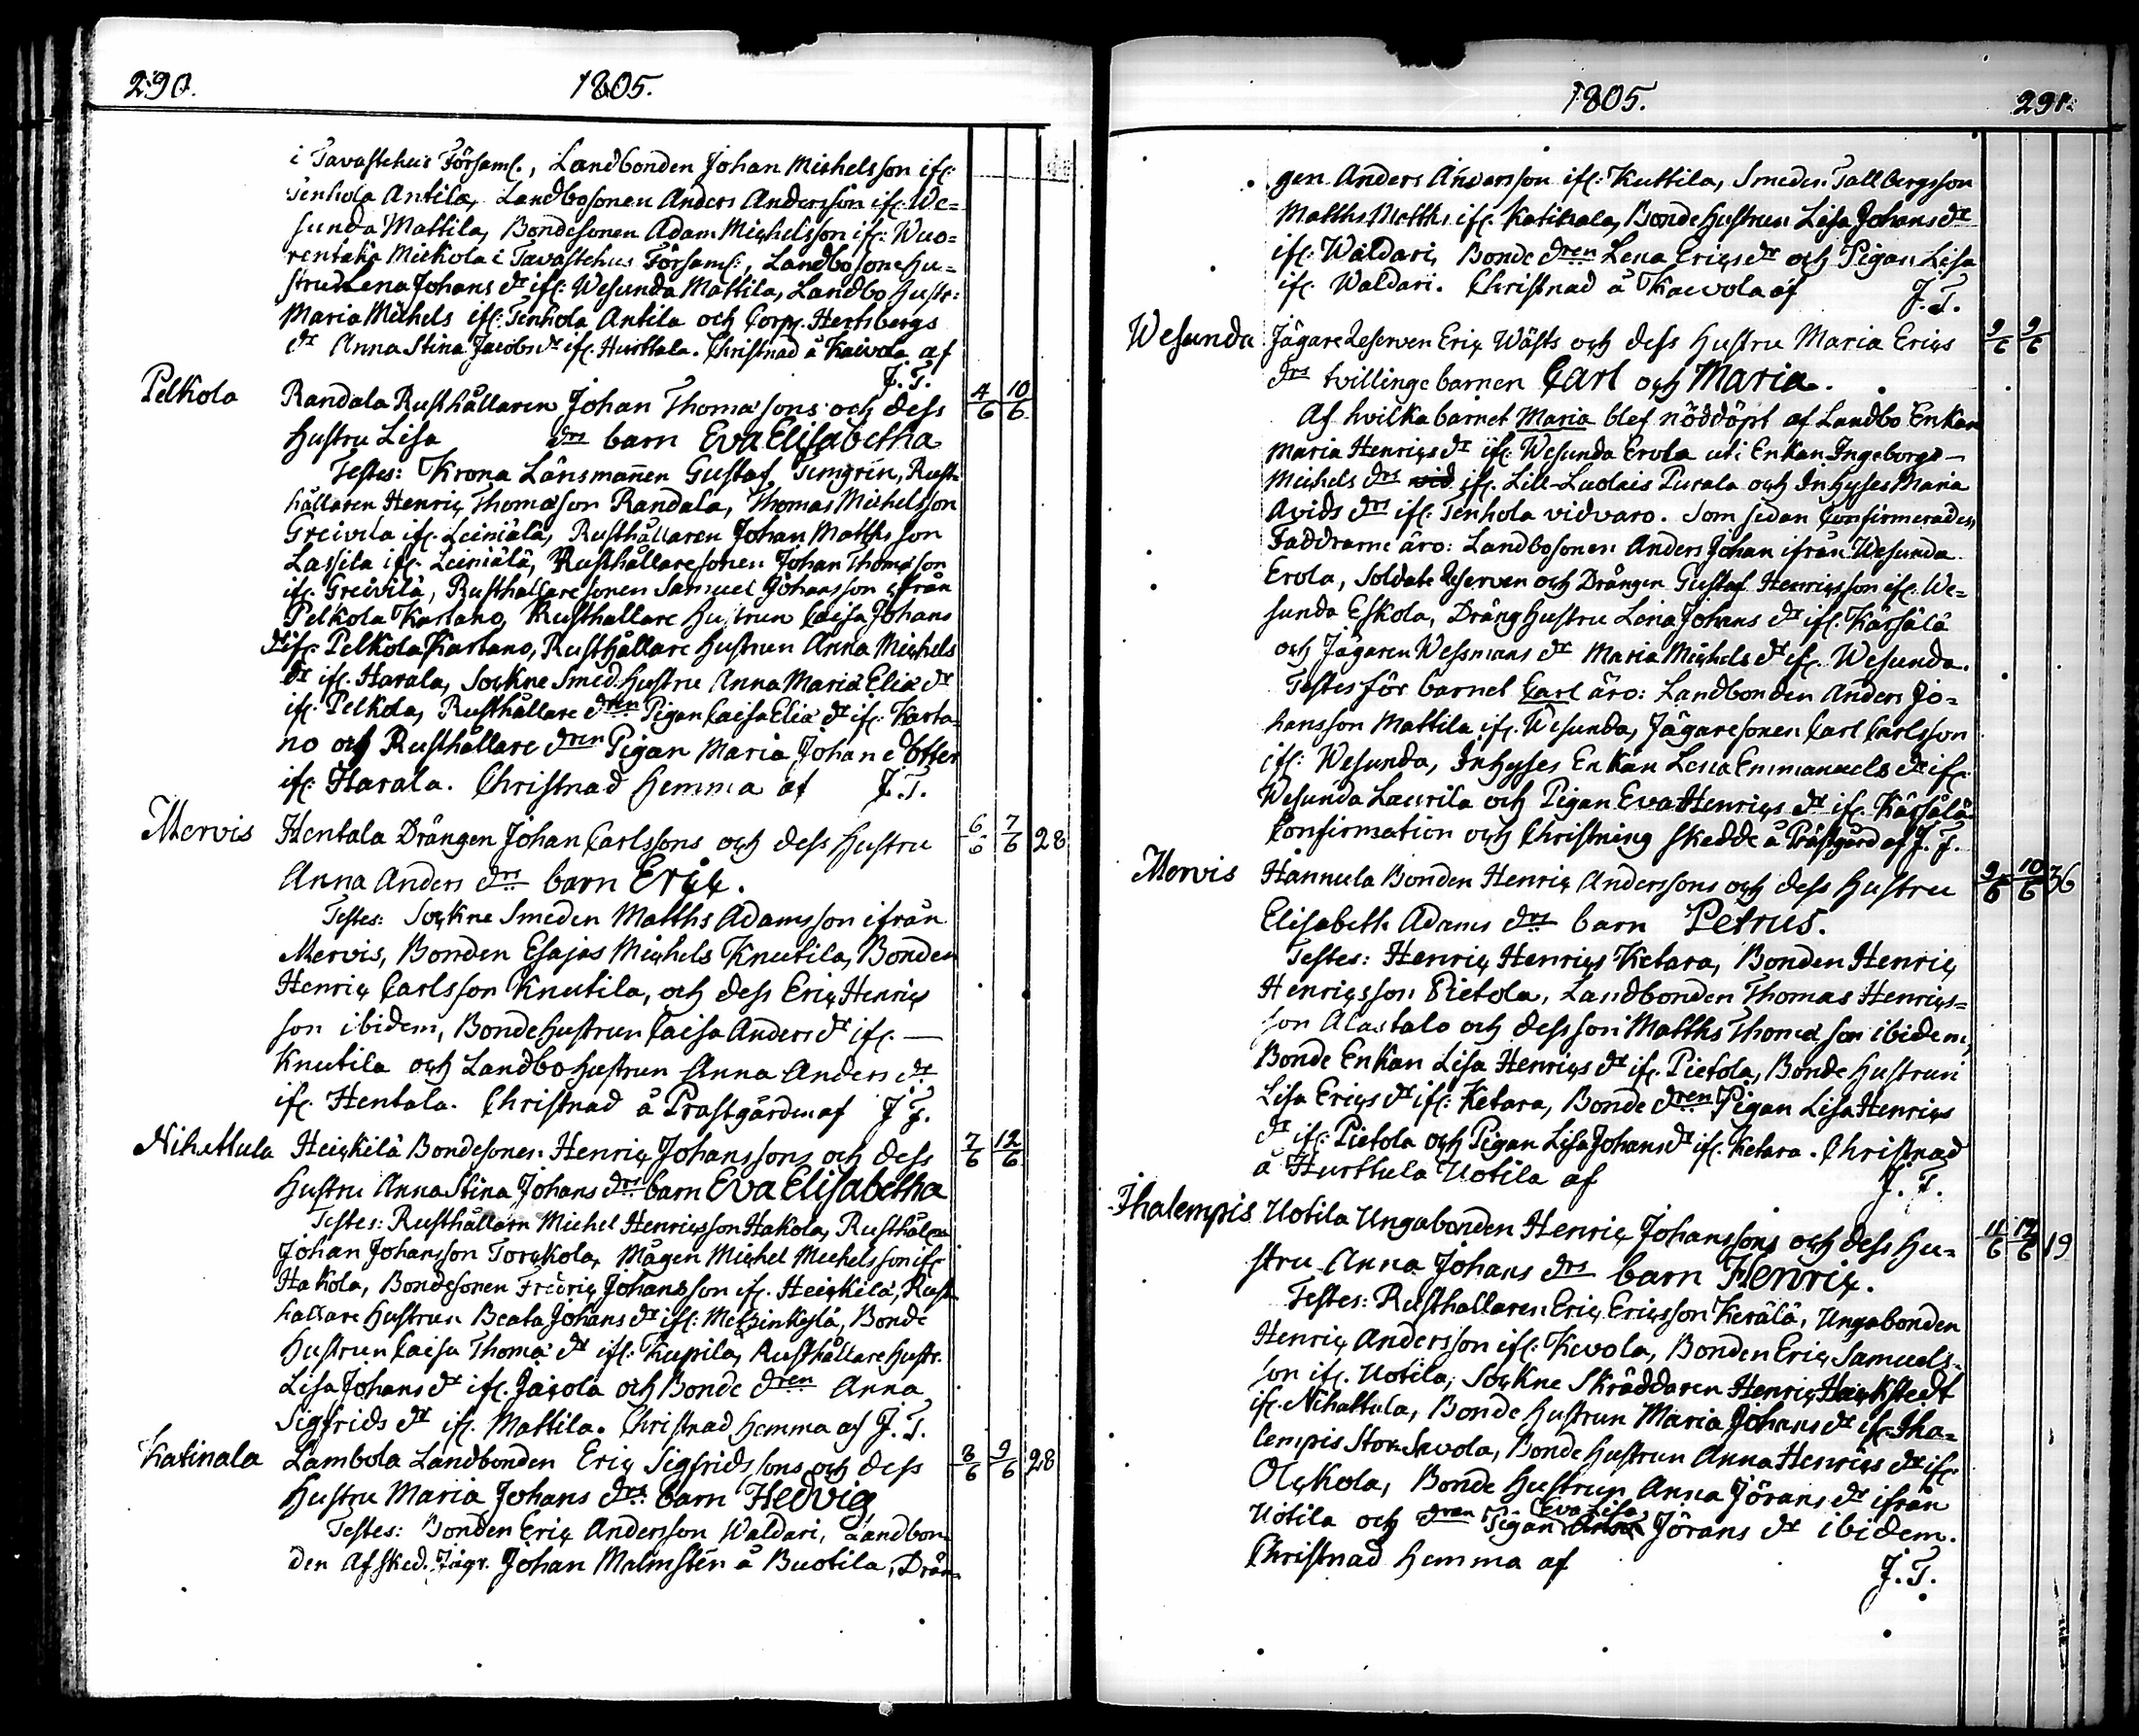 290. 1805.
i Tavastehus Församl., Landbonden Johan Michelsson ifr:
Tenhola Antila, Landbosonen Anders Andersson ifr. We=
sunda Mattila, Bondesonen Adam Michelsson ifr: Wuo=
rentaka Mickola i Tavastehus Församl:, Landbosonehu=
strun Lena Johans dr ifr: Wesunda Mattila, Landbo hustr:
Maria Michels ifr: Tenhola Antila och Corp. Hertsbergs
dr Anna Stina Jacobs dr ifr. Hurttala. Christnad å Kaivola af
J. T.
Pelkola Randala Rusthållaren Johan Thomæsons och dess 4/6 10/6
hustru Lisa drs barn Eva Elisabetha
Testes: Krono Länsmannen Gustaf Timgrén, Rust=
hållaren Henric Thomæson Randala, Thomas Michelsson
Greivila ifr. Leiniälä, Rusthållaren Johan Matthsson
Lassila ifr. Leiniälä, Rusthållaresonen Johan Thomæson
ifr. Greivilä, Rusthållaresonen Samuel Johansson ifrån
Pelkola Kartano, Rusthållare hustrun Caisa Johans
dr ifr. Pelkola Kartano, Rusthållare hustrun Anna Michels
dr ifr. Harala, Sockne Smed hustru Anna Maria Eliæ dr
ifr. Pelkola, Rusthållare dren Pigan Caisa Eliæ dr ifr. Karta=
no och Rusthållare dren Pigan Maria Johan dotter
ifr. Harala. Christnad hemma af J. T.
Mervis Hentala Drängen Johan Carlssons och dess hustru 6/6 7/6 28
Anna Anders drs barn Eric.
Testes: Sockne Smeden Matths Adamsson ifrån
Mervis, Bonden Esajas Michels Knutila, Bonden
Henric Carlsson Knutila, och dess Eric Henrics
son ibidem, Bondehustrun Caisa Anders dr ifr. —
Knutila och Landbohustrun Anna Anders dr
ifr. Hentala. Christnad å Prästgården af J. T.
Nihattula Heickilä Bondesonen Henric Johanssons och dess 7/6 12/6
hustru Anna Stina Johans drs barn Eva Elisabetha
Testes: Rusthållarn Michel Henricsson Hakola, Rusthåln
Johan Johansson Torckola, Mågen Michel Michelsson ifr
Hakola, Bondesonen Fredric Johansson ifr. Heickilä, Rust
hållare hustrun Beata Johans dr ifr: Metsinkylä, Bonde
hustrun Caisa Thomæ dr ifr: Kupila, Rusthållare hustr.
Lisa Johans dr ifr. Jaivola och Bonde dren Anna
Sigfrids dr ifr. Mattila. Christnad hemma af J. T.
Katinala Lambola Landbonden Eric Sigfridssons och dess 8/6 9/6 28
hustru Maria Johans drs barn Hedvig
Testes: Bonden Eric Andersson Waldari, Landbon=
den Afsked. Jägr. Johan Malmstén å Buotila, Drän=
1805. 291.
gen Anders Andersson ifr: Kuttila, Smeden Tallbergsson
Matths Matths ifr. Katinala, Bondehustrun Lisa Johans dr
ifr: Waldari, Bonde dren Lena Erics dr och Pigan Lisa
ifr. Waldari. Christnad å Kaivola af J. T.
Wesunda Jägare Reserven Eric Wästs och dess hustru Maria Erics 9/6 9/6
drs tvillinge barnen Carl och Maria.
Af hvilka barnet Maria blef nöddöpt af Landbo Enkan
Maria Henrics dr ifr. Wesunda Erola uti Enkan Ingeborgs —
Michels drs ifr. Lill-Luolais Purala och Inhyses Maria
Avids drs ifr. Tenhola vidvaro. Som sedan Confirmerades
Faddrarne äro: Landbosonen Anders Johan ifrån Wesunda
Erola, Soldate Reserven och Drängen Gustaf Henricsson ifr. We=
sunda Eskola, Dräng hustru Lena Johans dr ifr. Kärsälä
och Jägaren Wessmans dr Maria Michels dr ifr. Wesunda.
Testes för barnet Carl äro: Landbonden Anders Jo=
hansson Mattila ifr. Wesunda, Jägaresonen Carl Carlsson
ifr: Wesunda, Inhyses Enkan Lena Emmanuels dr ifr.
Wesunda Laurila och Pigan Eva Henrics dr ifr. Kärsälä.
Confirmation och Christning skedde å Prästgård af J. T.
Mervis Hannula Bonden Henric Anderssons och dess hustru 9/6 10/6 36
Elisabeth Adams drs barn Petrus.
Testes: Henric Henrics Ketara, Bonden Henric
Henricsson Pietola, Landbonden Thomas Henrics=
son Alastalo och dess son Matths Thomæson ibidem,
Bonde Enkan Lisa Henrics dr ifr. Pietola, Bonde hustrun
Lisa Erics dr ifr: Ketara, Bonde dren Pigan Lisa Henrics
dr ifr: Pietola och Pigan Lisa Johans dr ifr. Ketara. Christnad
å Hurttula Uotila af J. T.
Ihalempis Uotila Ungabonden Henric Johanssons och dess hu= 11/6 12/6 19
stru Anna Johans drs barn Henric.
Testes: Rusthållaren Eric Ericsson Kerälä, Ungabonden
Henric Andersson ifr: Kevola, Bonden Eric Samuels=
son ifr. Uotila, Sockne Skräddaren Henric Heickstedt
ifr. Nihattula, Bonde hustrun Maria Johans dr ifr. Iha=
lempis Stor Savola, Bonde hustrun Anna Henrics dr ifr.
Olckola, Bonde hustrun Anna Jörans dr ifrån
Uotila och dren Pigan Eva Lisa Jörans dr ibidem.
Christnad hemma af J. T.